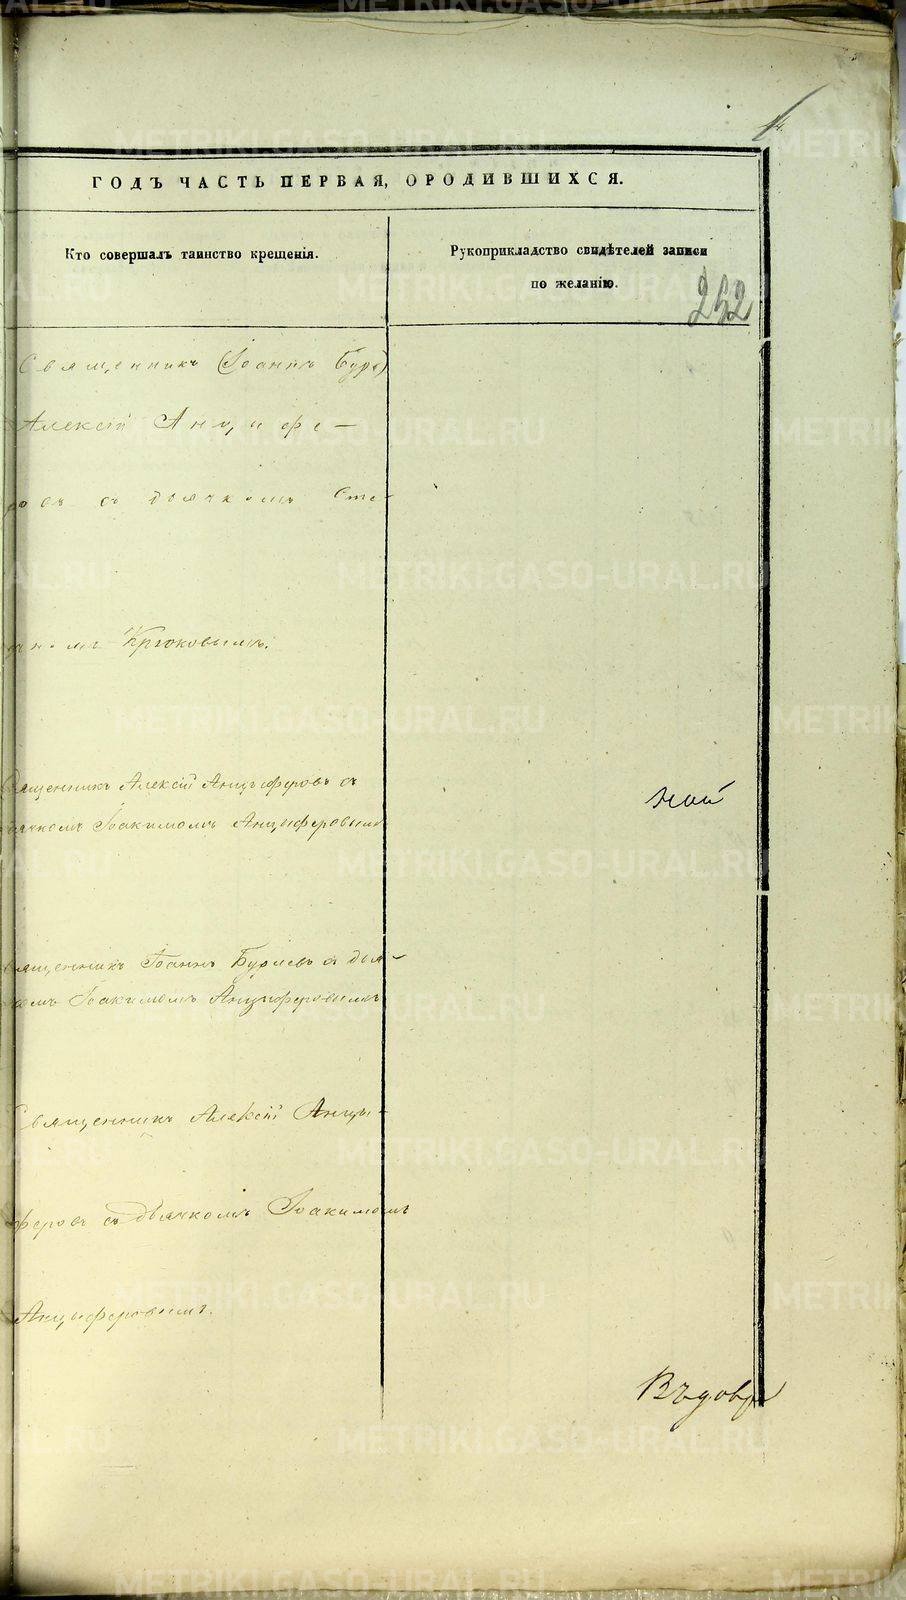 ГОДЪ ЧАСТЬ ПЕРВАЯ, ОРОДИВШИХСЯ.
Кто совершалъ таинство крещенія.
Рукоприкладство свидѣтелей записи
по желанію.
252
Священникъ Іоаннъ
Алексій Анцифе-
ровъ съ дьячкомъ Сте-
Крюковымъ.
Священникъ Алексій Анцыферовъ съ
дьячкомъ Іоакимомъ Анцыферовым
Священникъ Іоаннъ съ дья-
комъ Іоакимомъ Анциферовымъ
Священникъ Алексій Анцы-
феровъ съ дьячкомъ Іоакимомъ
Анцыферовымъ.
ной
METRIKI.GASO-URAL.RU